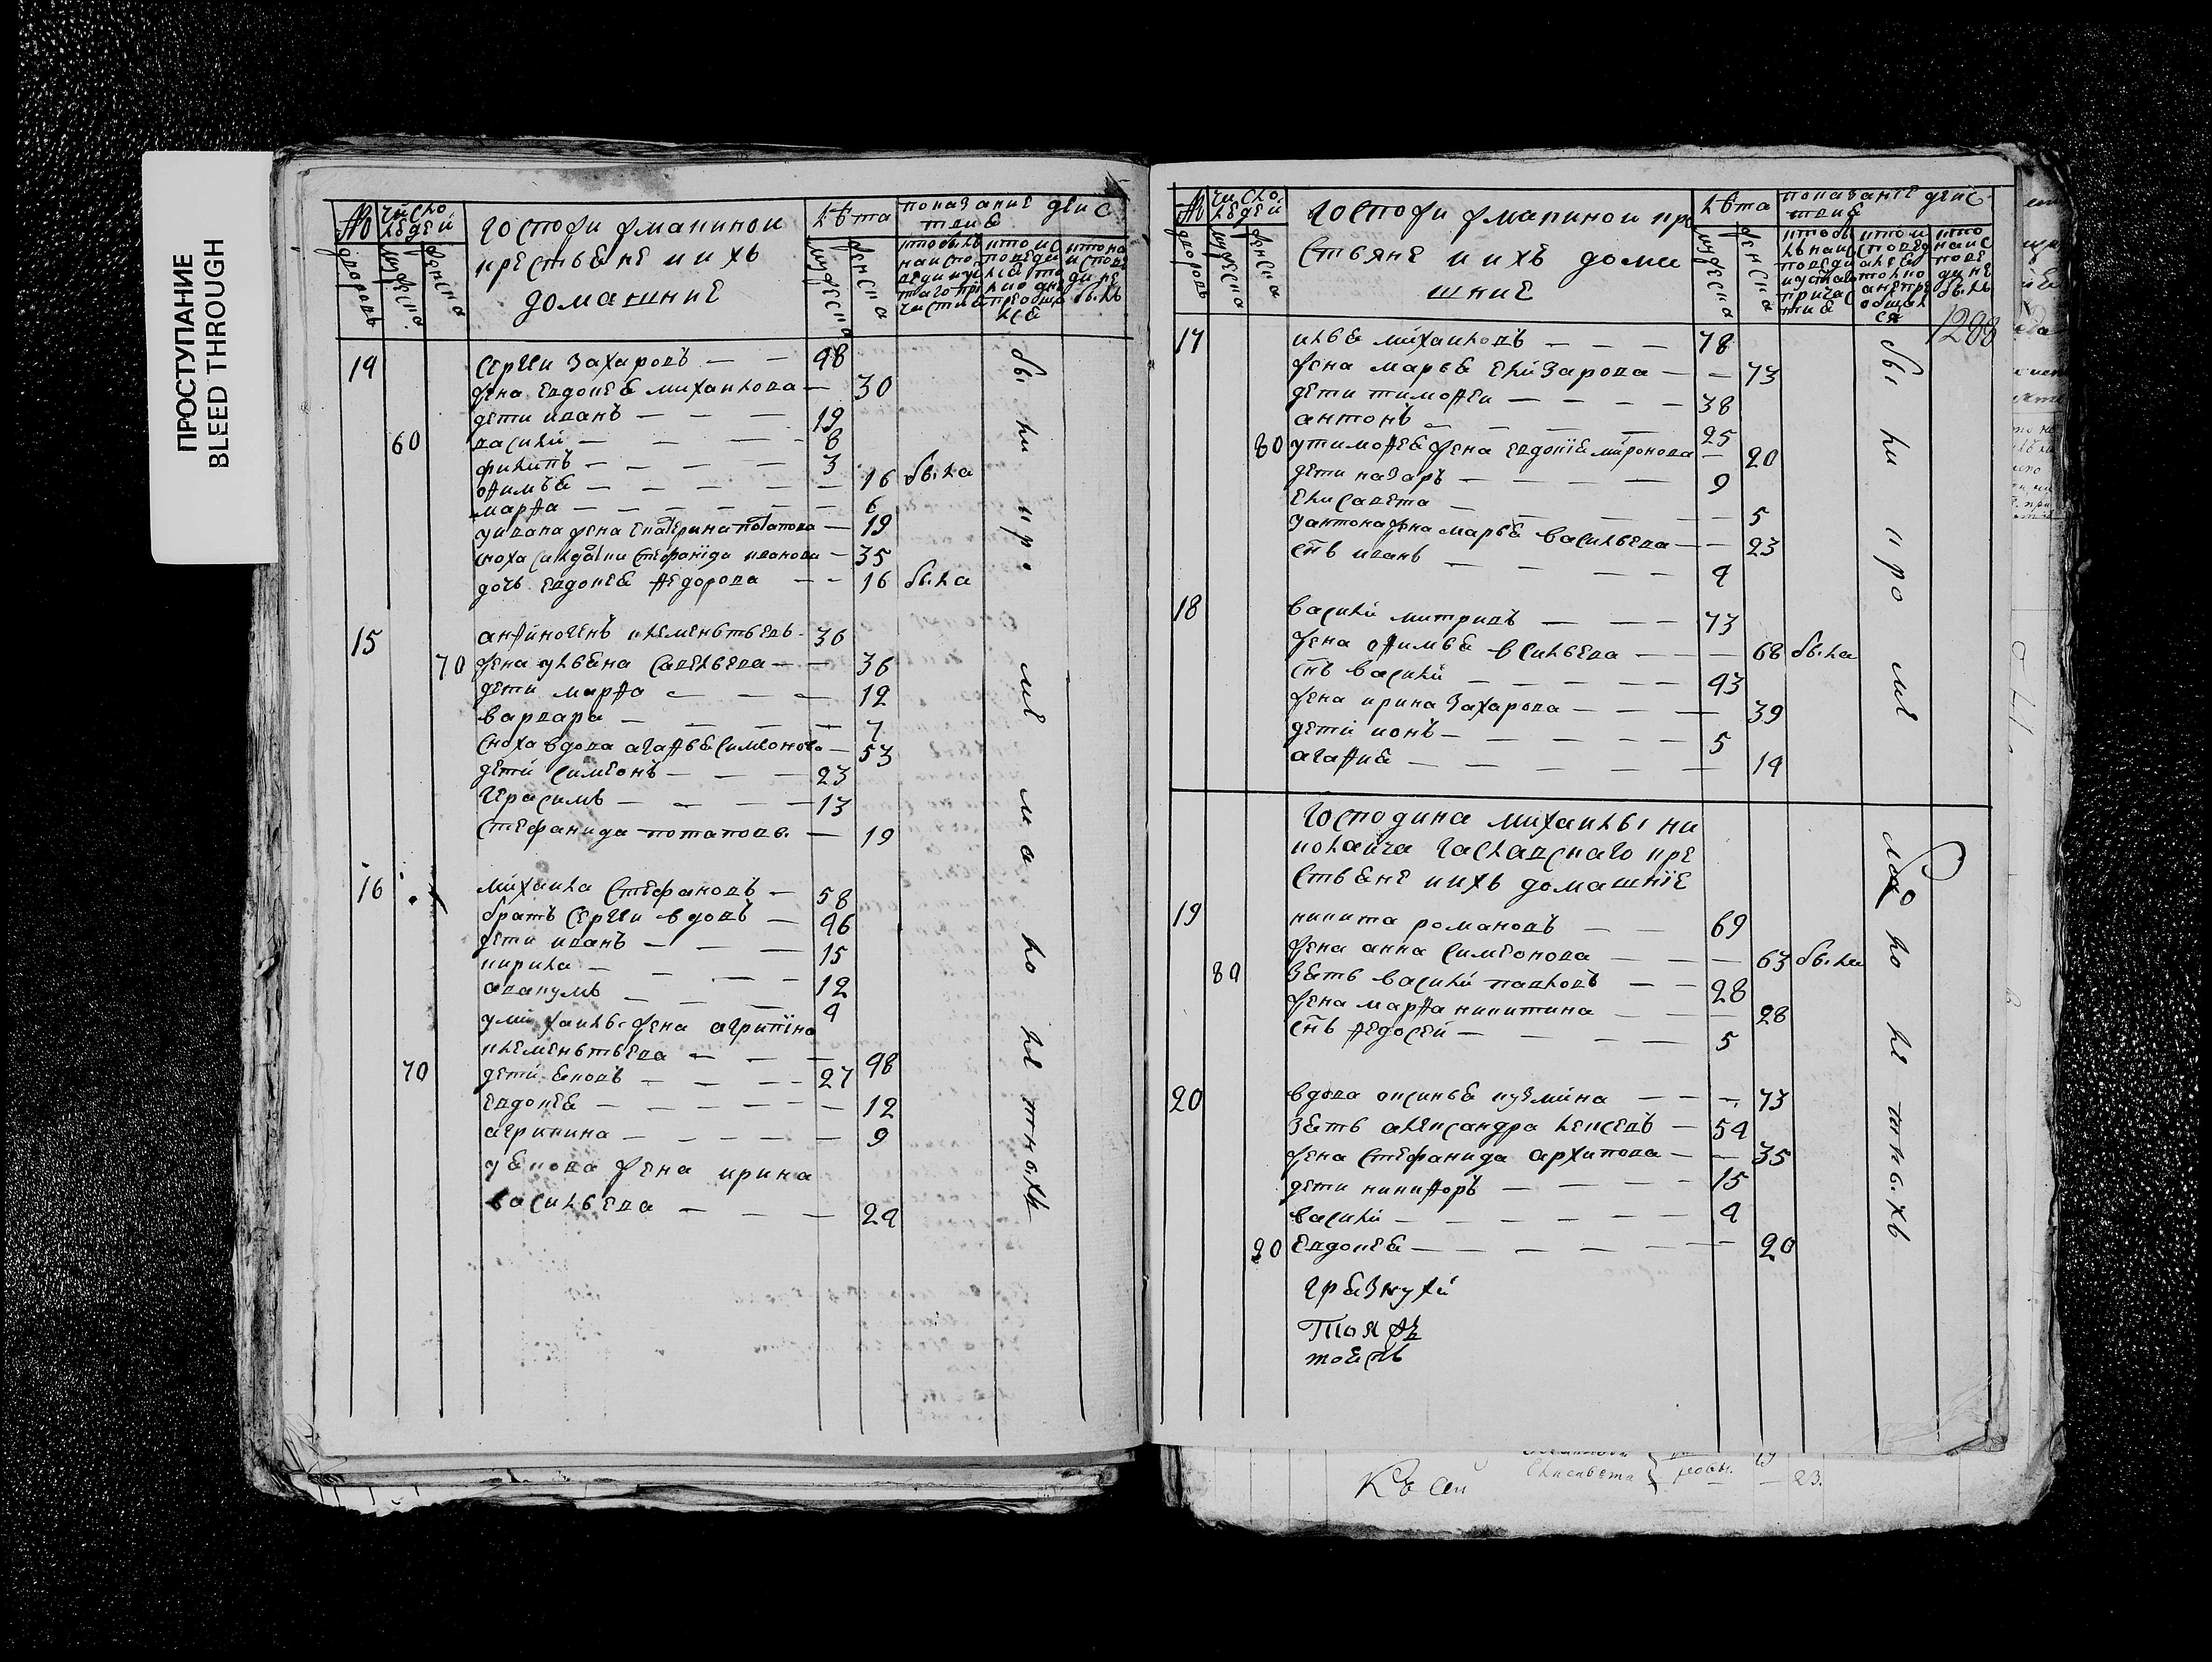 ПРОСТУПАНИЕ
BLEED THROUGH
№ дворовъ
число людей
мужеска
женска
госпожи жмакиной
крестьяне и ихъ
домашние
лѣта
мужеска
женска
показание действие
14 Сергей Захаровъ — — 48
жена Евдокея Михайлова — 30
дети Иванъ — — — 19
60 Василй — — — — 8
Филипъ — — — — 3
Офимья — — — — — 16 была
Марфа — — — — — — 6
у Ивана жена Екатерина Потапова — 19
сноха салдатка Стефанида Иванова — 35
дочь Евдокея Федорова — — 16 была
15 Анфиногенъ Клементьевъ — 36
70 жена Ульяна Савельева — — 36
дети Марфа — — — 12
Варвара — — — — 7
сноха вдова Агафья Симеонова — 53
дети Симеонъ — — — 23
Герасимъ — — — — 13
Стефанида Потапова — 19
16 Михаила Стефановъ — 58
братъ Сергей вдовъ — 46
дети Иванъ — — — 15
Кирила — — — — 12
Авакумъ — — — 4
у Михаилы жена Агрипина
Клементьева — — — 48
70 дети Яковъ — — — — 27
Евдокея — — — — — — 12
Агрипина — — — — — 9
у Якова жена Ирина
Васильева — — — 24
были кроме малолетныхъ
№ дворовъ
число людей
мужеска
женска
госпожи жмакиной кре
стьяне и ихъ дома
шние
лѣта
мужеска
женска
показание дейс
твие
1288
17 Илья Михаиловъ — — — 78
жена Марья Елизарова — — 73
дети Тимофей — — — — 38
Антонъ — — — — 25
80 у Тимофея жена Евдокия Миронова — 20
дети Назаръ — — — — 9
Елисавета — — — — — 5
у Антона жена Марья Васильева — — 23
снъ Иванъ — — — — 4
18 Василй Митривъ — — — 73
жена Офимья Васильева — — — 68 была
снъ Василй — — — — — 43
жена Ирина Захарова — — — — 39
дети Ионъ — — — — — 5
Агафия — — — — — 14
были кроме
господина Михаилы Ни
колаича Чаславскаго кре
стьяне и ихъ домашние
19 Никита Романовъ — — 69
жена Анна Симеонова — — — 63 была
84 зять Василй Павловъ — — 28
жена Марфа Никитина — — — 28
снъ Федосей — — — — 5
20 вдова Оксинья Кузмина — — — 73
зять Александра Алексевъ — 54
жена Стефанида Архипова — — 35
дети Никифоръ — — — — 15
Василй — — — — — — 4
90 Евдокея — — — — — — 20
малолетныхъ
Елисавета
23.